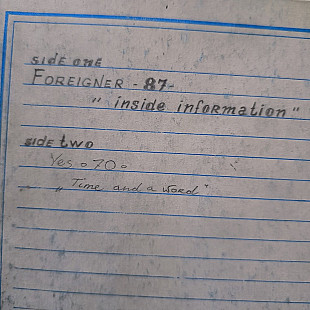 SIDE ONE
FOREIGNER - 87-
" inside information "
SIDE two
Yes 70
" Time and a word "